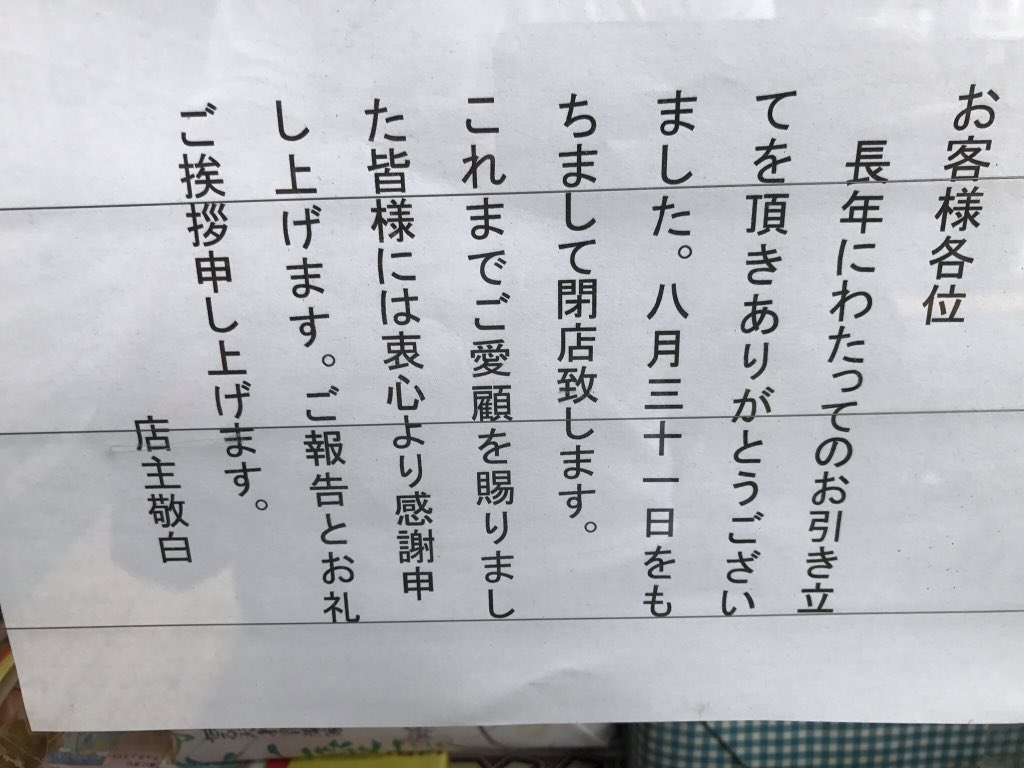 お客様各位
長年にわたってのお引き立
てを頂きありがとうござい
ました。八月三十一日をも
ちまして閉店致します。
これまでご愛顧を賜りまし
た皆様には衷心より感謝申
し上げます。ご報告とお礼
ご挨拶申し上げます。
店主敬白